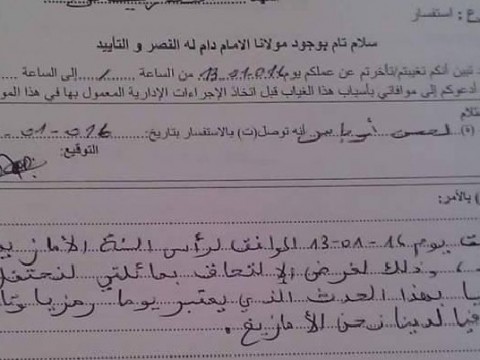 ع : استفسار
سلام تام بوجود مولانا الامام دام له القصر و التأييد
تبين أنكم تغيبتم/تأخرتم عن عملكم يوم 13.01.016 من الساعة / إلى الساعة
ادعوكم إلى موافاتي بأسباب هذا الغياب قبل اتخاذ الإجراءات الإدارية المعمول بها في هذا المو
ستلام
(ة) لحسن أنه توصل(ت) بالاستفسار بتاريخ: 01-016
التوقيع:
) بالأمر:
يوم 16-01-13 الموافق لرأس السنة الأمازيغ
، وذلك لغرض الإلتحاق بعائلتي لنحتفل
بهذا الحدث الذي يعتبر يوما رمزيا
لدينا نحن الأمازيغ.